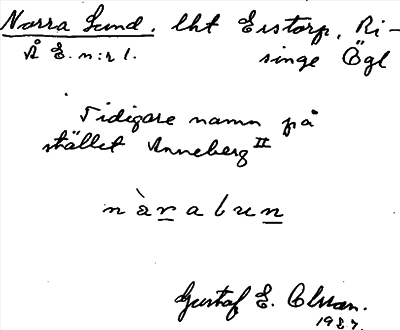 Norra Lund. lht Erstorp, Ri-
Å E. n:r 1. singe Ögl
Tidigare namn på
stället Anneberg II
nàrabun
Gustaf E. Olsson.
1987.